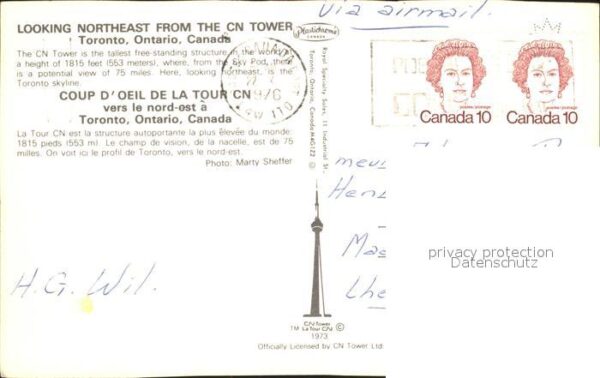 LOOKING NORTHEAST FROM THE CN TOWER
Toronto, Ontario, Canada
The CN Tower is the tallest free-standing structure in the world,
a height of 1815 feet (553 meters), where, from the Sky Pod, there
is a potential view of 75 miles. Here, looking northeast, is the
Toronto skyline.
COUP D'OEIL DE LA TOUR CN
vers le nord-est à
Toronto, Ontario, Canada
La Tour CN est la structure autoportante la plus élevée du monde:
1815 pieds (553 m). Le champ de vision, de la nacelle, est de 75
milles. On voit ici le profil de Toronto, vers le nord-est.
Photo: Marty Sheffer
H.G. Wil.
Plastichrome
CANADA
Royal Specialty Sales, 11 Industrial St.,
Toronto, Ontario, Canada M4G1Z2 ©
CN Tower
TM La Tour CN ©
1973
Officially Licensed by CN Tower Ltd
Via airmail.
Canada 10
Canada 10
privacy protection
Datenschutz